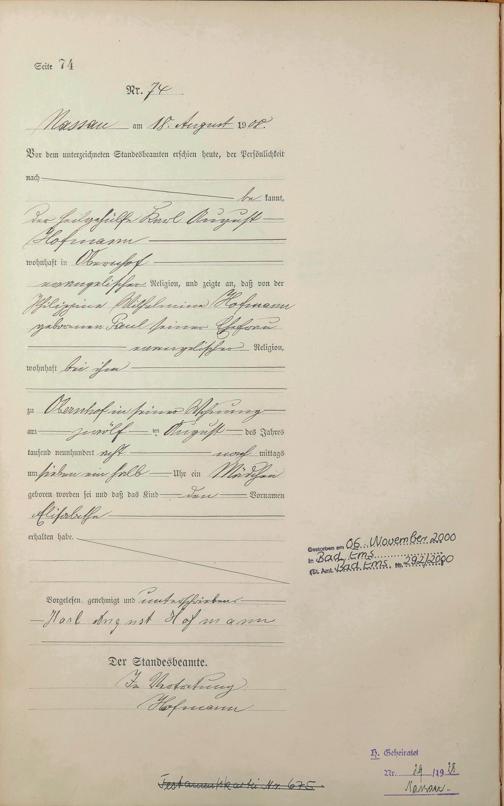 Seite 74
Nr. 74
Nassau am 18. August 1908.
Vor dem unterzeichneten Standesbeamten erschien heute, der Persönlichkeit
nach
be kannt,
der Heilgehülfe Karl August
Hofmann
wohnhaft in Obernhof
evangelischer Religion, und zeigte an, daß von der
Philippine Wilhelmine Hofmann
geborenen Paul seiner Ehefrau
evangelischer Religion,
wohnhaft bei ihm
zu Obernhof in seiner Wohnung
am zwölf ten August des Jahres
tausend neunhundert acht nach mittags
um sieben ein halb Uhr ein Mädchen
geboren worden sei und daß das Kind den Vornamen
Elisabetha
erhalten habe.
Gestorben am 06. November 2000
in Bad Ems
(St. Amt. Bad Ems Nr. 292/2000
Vorgelesen, genehmigt und unterschrieben
Karl August Hofmann
Der Standesbeamte.
In Vertretung
Hofmann
H. Geheiratet
Nr. /19
Nassau
Testamentskartei Nr 675